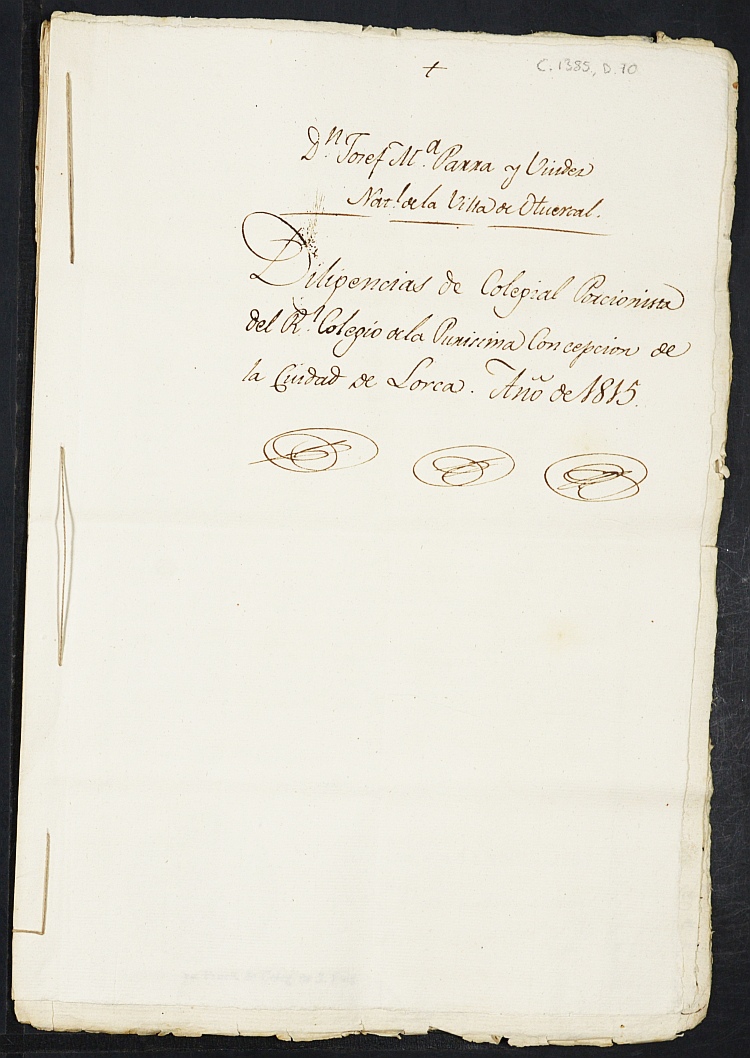 C. 1385, D. 70
+
Dn. Josef Ma. Parra y Viudez
Natl. de la Villa de Huercal.
Diligencias de Colegial Porcionista
del Rl. Colegio de la Purisima Concepcion de
la Ciudad de Lorca. Año de 1815.